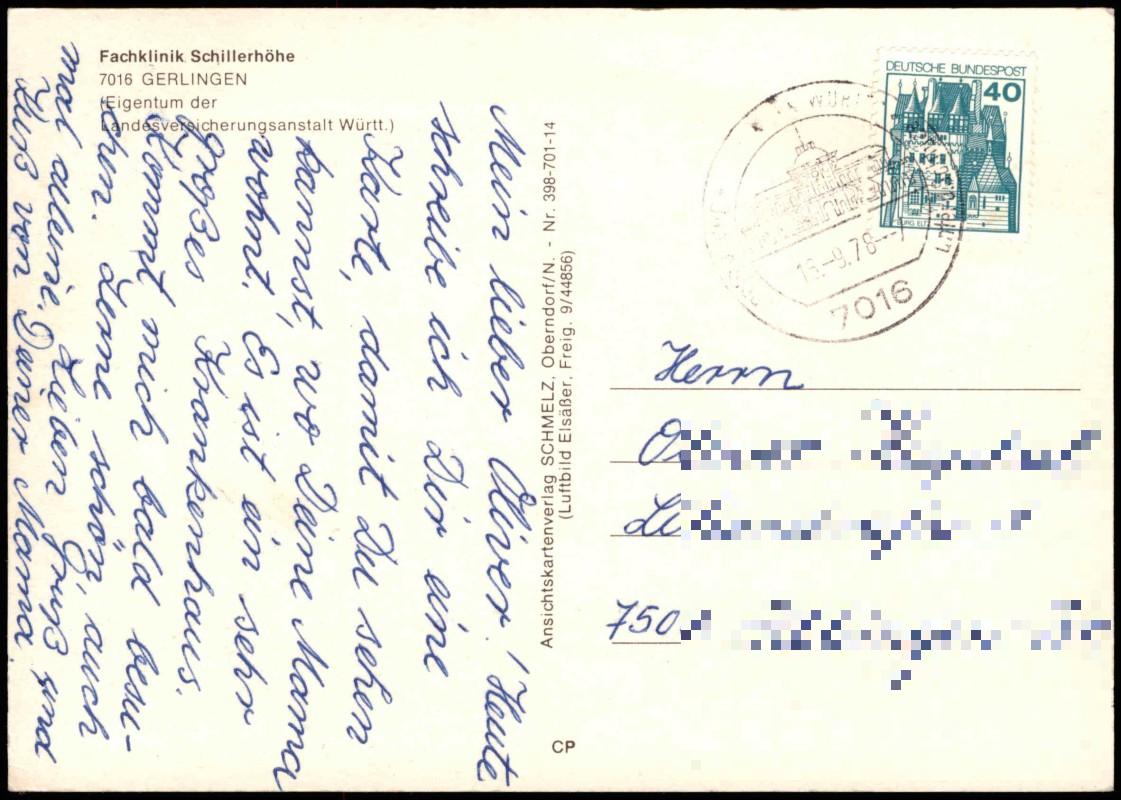 Fachklinik Schillerhöhe
7016 GERLINGEN
(Eigentum der
Landesversicherungsanstalt Württ.)
Mein lieber Oliver! Heute
schreibe ich Dir eine
Karte, damit Du sehen
kannst, wo Deine Mama
wohnt. Es ist ein sehr
großes Krankenhaus.
Kommt mich bald besu-
chen. Lerne schön, auch
mal alleine. Lieben Gruß und
Kuß von Deiner Mama.
Ansichtskartenverlag SCHMELZ, Oberndorf/N. - Nr. 398-701-14
(Luftbild Elsäßer, Freig. 9/44856)
CP
DEUTSCHE BUNDESPOST
40
BURG ELTZ
WÜRTT
-9.78-
7016
Herrn
750